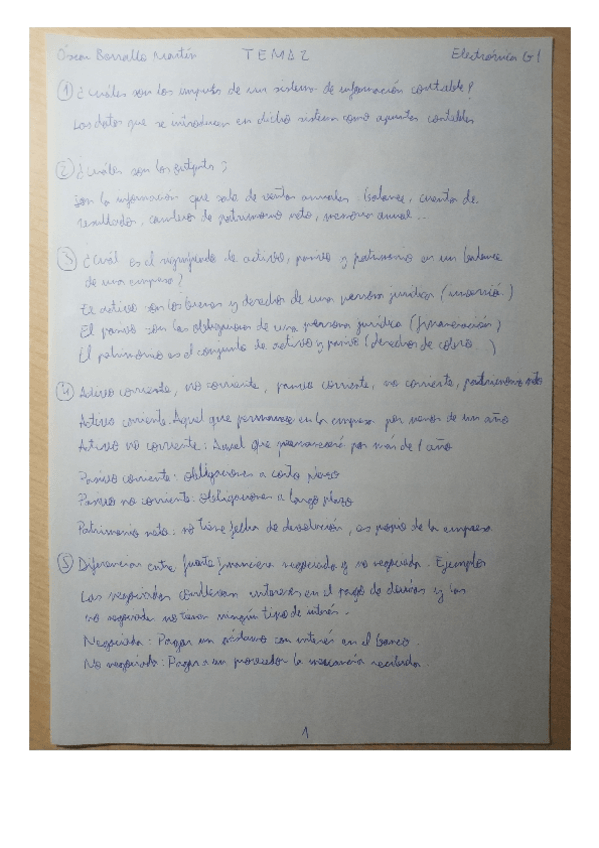 Óscar Borrallo Martín TEMA 2 Electrónica G1
① ¿Cuáles son los inputs de un sistema de información contable?
Los datos que se introducen en dicho sistema como apuntes contables
② ¿Cuáles son los outputs?
Son la información que sale de ventas anuales: balance, cuenta de
resultados, cambios de patrimonio neto, memoria anual...
③ ¿Cuál es el significado de activo, pasivo y patrimonio en un balance
de una empresa?
El activo son los bienes y derechos de una persona jurídica
El pasivo son las obligaciones de una persona jurídica (financiación)
El patrimonio es el conjunto de activo y pasivo (derechos de cobro...)
④ Activo corriente, no corriente, pasivo corriente, no corriente, patrimonio neto
Activo corriente: Aquel que permanece en la empresa por menos de un año
Activo no corriente: Aquel que permanecerá por más de 1 año
Pasivo corriente: obligaciones a corto plazo
Pasivo no corriente: obligaciones a largo plazo
Patrimonio neto: no tiene fecha de devolución, es propio de la empresa
⑤ Diferencias entre fuente financiera negociada y no negociada. Ejemplos
Las negociadas conllevan intereses en el pago de deudas y las
no negociada no tienen ningún tipo de interés.
Negociada: Pagar un préstamo con interés en el banco.
No negociada: Pagar a un proveedor la mercancía recibida.
1